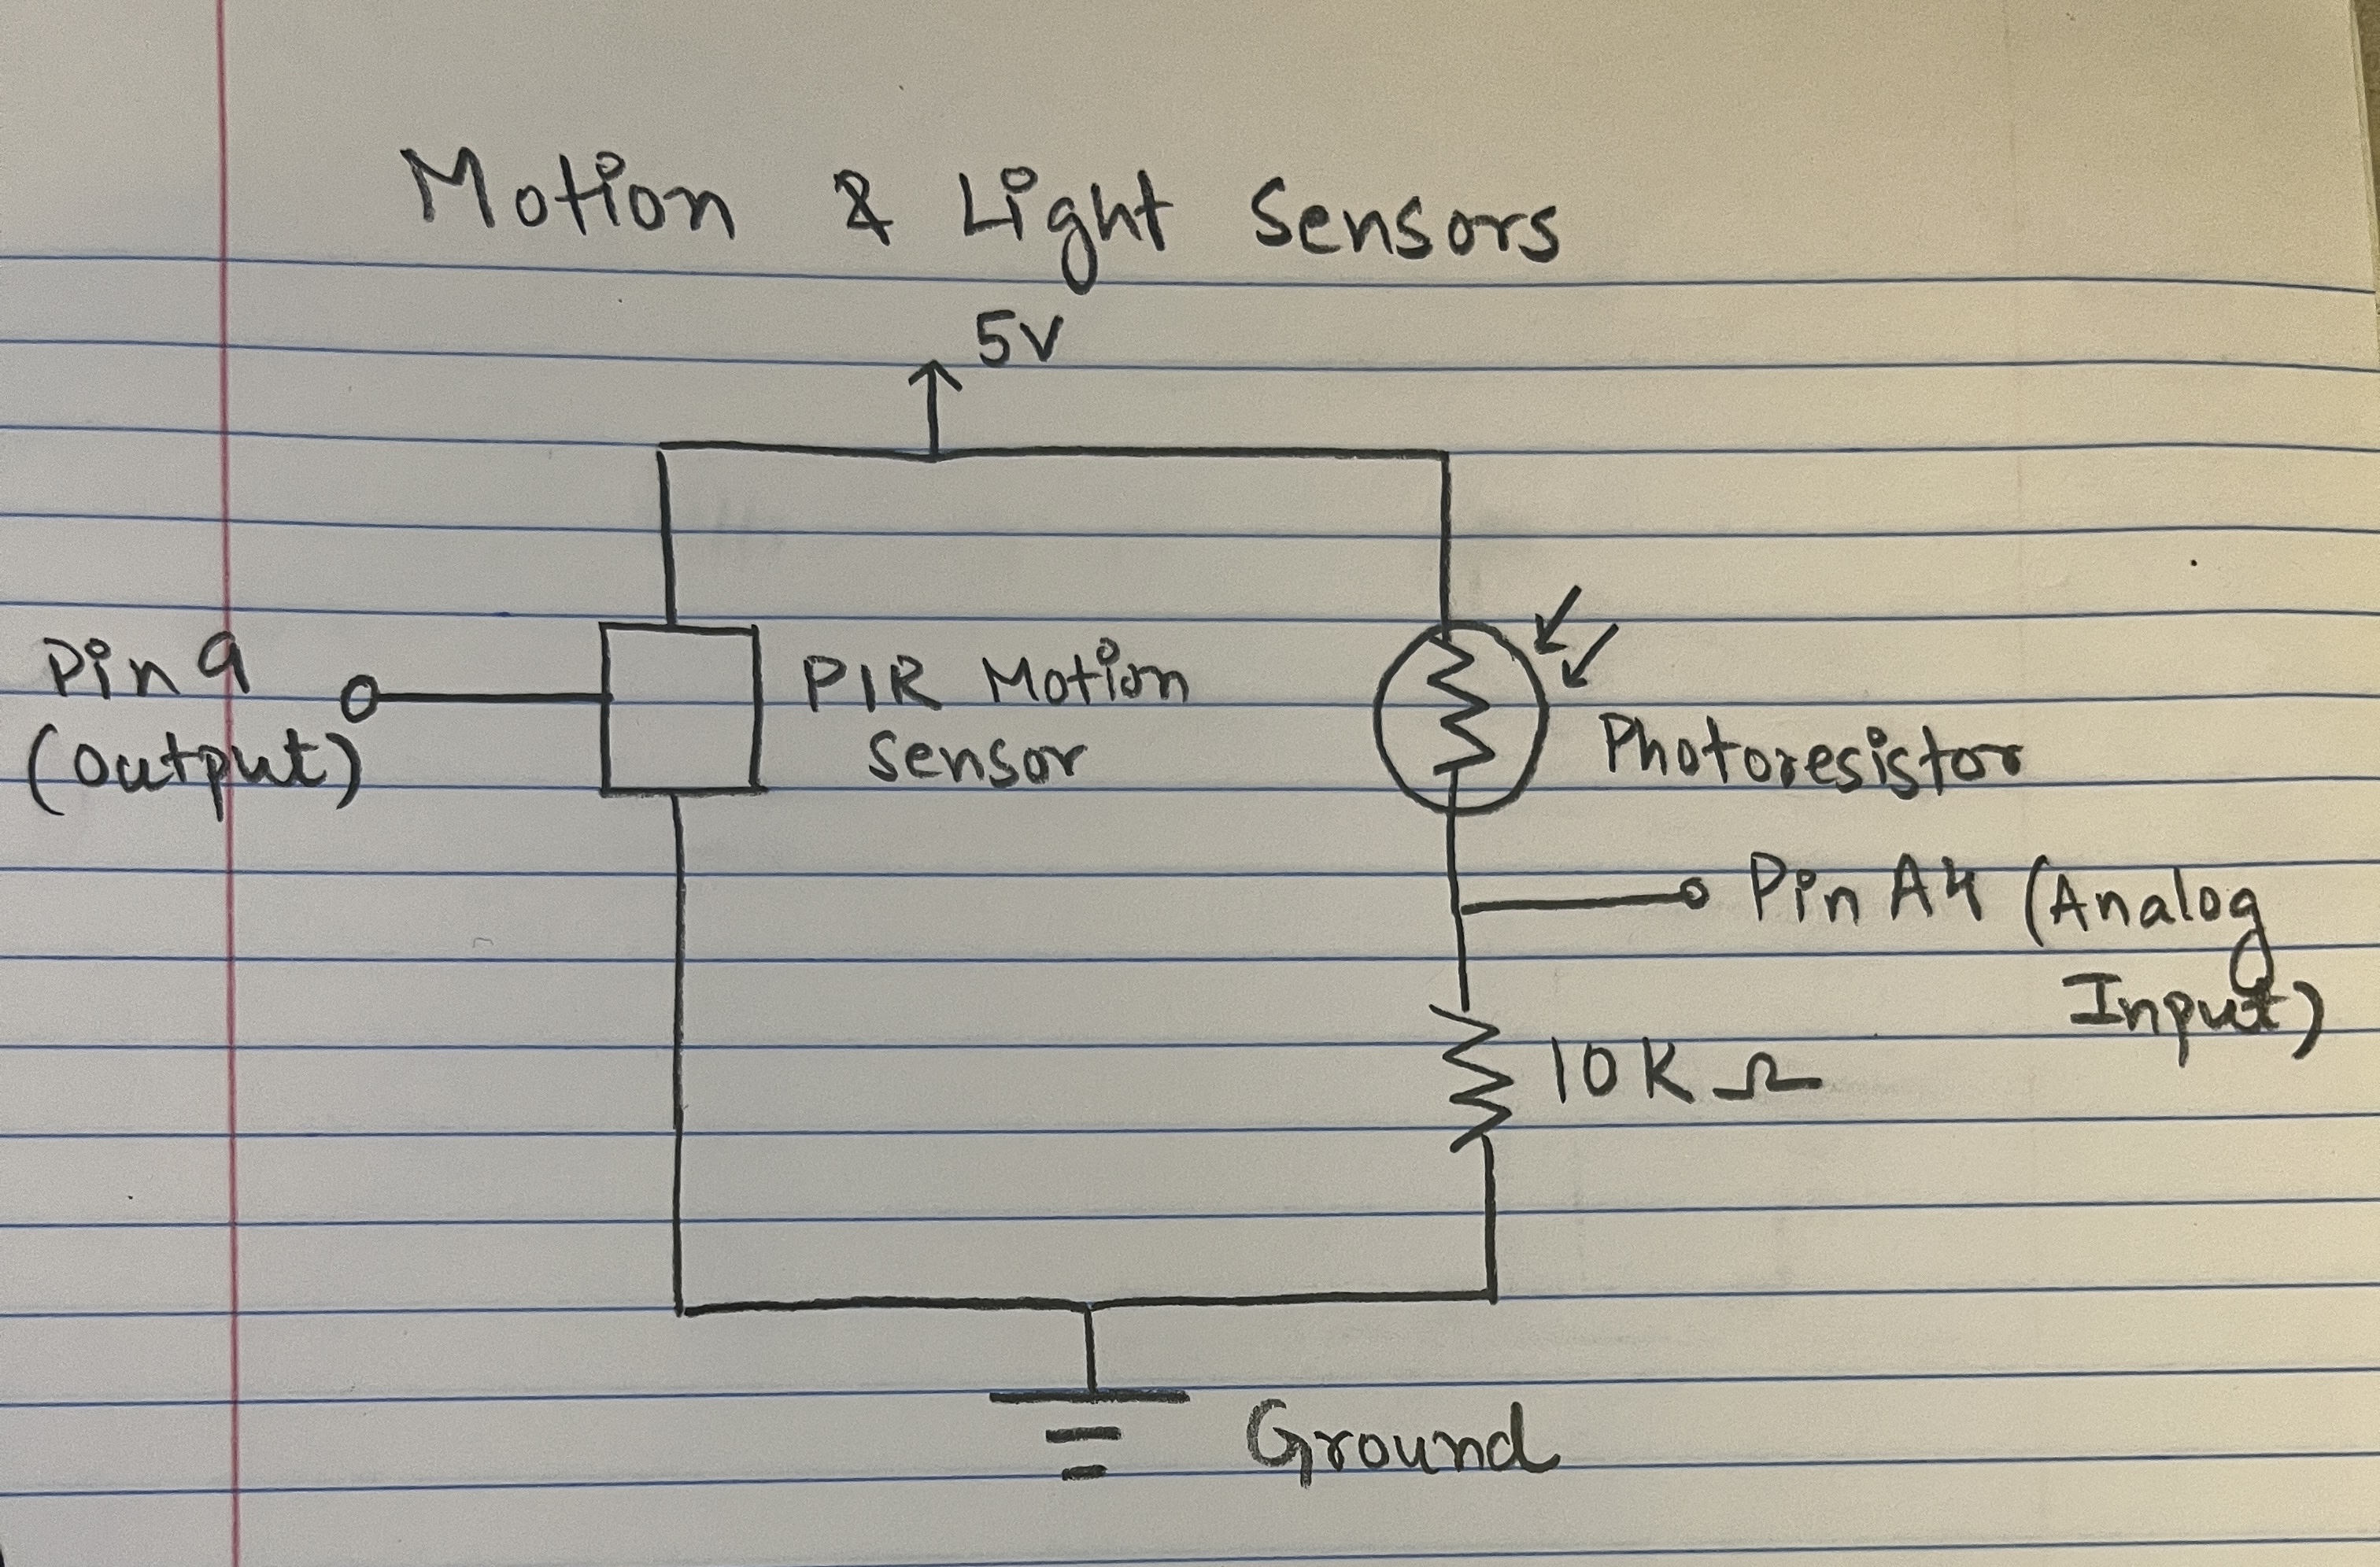 Motion & Light Sensors
5V
Pin 9
(Output)
PIR Motion
Sensor
Photoresistor
Pin A4 (Analog
Input)
10K Ω
Ground